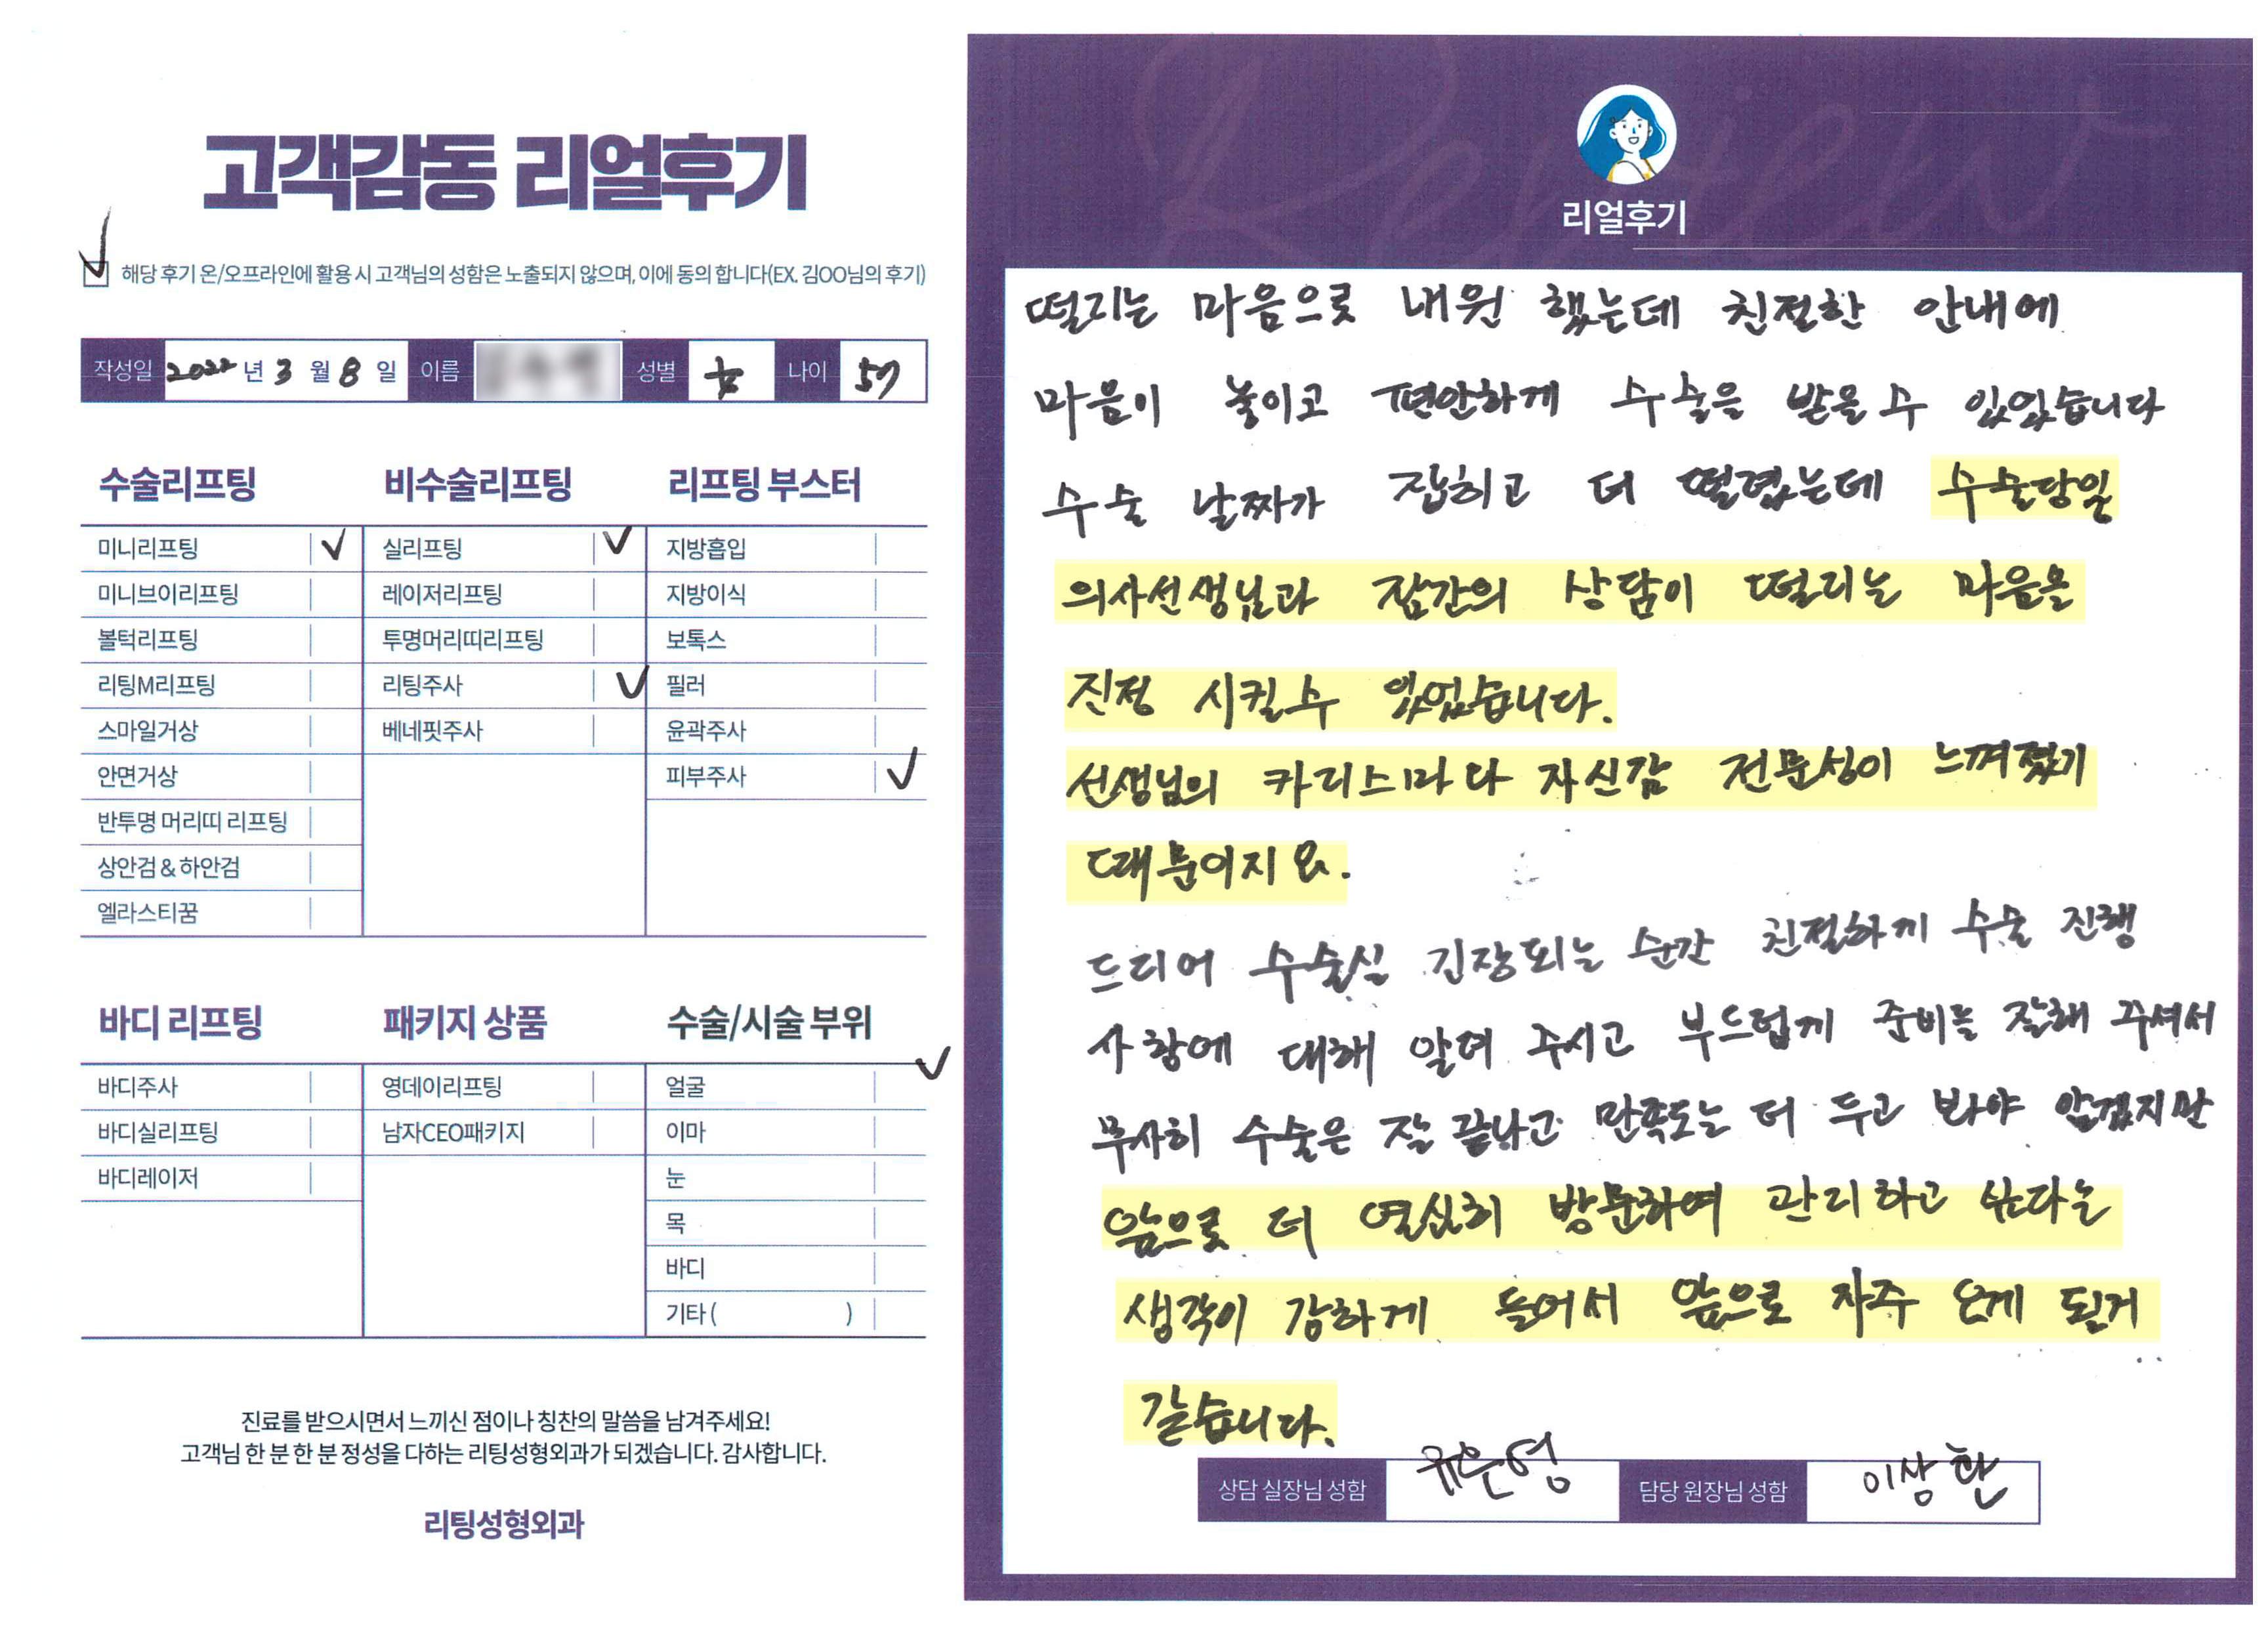 고객감동 리얼후기
해당 후기 온/오프라인에 활용 시 고객님의 성함은 노출되지 않으며, 이에 동의 합니다(EX. 김OO님의 후기)
작성일 2022 년 3 월 8 일 이름 성별 女 나이 57
수술리프팅
미니리프팅
미니브이리프팅
볼턱리프팅
리팅M리프팅
스마일거상
안면거상
반투명 머리띠 리프팅
상안검 & 하안검
엘라스티꿈
비수술리프팅
실리프팅
레이저리프팅
투명머리띠리프팅
리팅주사
베네핏주사
리프팅 부스터
지방흡입
지방이식
보톡스
필러
윤곽주사
피부주사
바디 리프팅
바디주사
바디실리프팅
바디레이저
패키지 상품
영데이리프팅
남자CEO패키지
수술/시술 부위
얼굴
이마
눈
목
바디
기타 ( )
진료를 받으시면서 느끼신 점이나 칭찬의 말씀을 남겨주세요!
고객님 한 분 한 분 정성을 다하는 리팅성형외과가 되겠습니다. 감사합니다.
리팅성형외과
Review
리얼후기
떨리는 마음으로 내원 했는데 친절한 안내에
마음이 놓이고 편안하게 수술을 받을 수 있었습니다
수술 날짜가 잡히고 더 떨렸는데 수술당일
의사선생님과 잠간의 상담이 떨리는 마음을
진정 시킬수 있었습니다.
선생님의 카리스마와 자신감 전문성이 느껴졌기
때문이지요.
드디어 수술실 긴장되는 순간 친절하게 수술 진행
사항에 대해 알려 주시고 부드럽게 준비를 잘해 주셔서
무사히 수술은 잘 끝나고 만족도는 더 두고 봐야 알겠지만
앞으로 더 열심히 방문하여 관리하고 싶다는
생각이 강하게 들어서 앞으로 자주 오게 될거
같습니다.
상담 실장님 성함 유은영 담당 원장님 성함 이상환